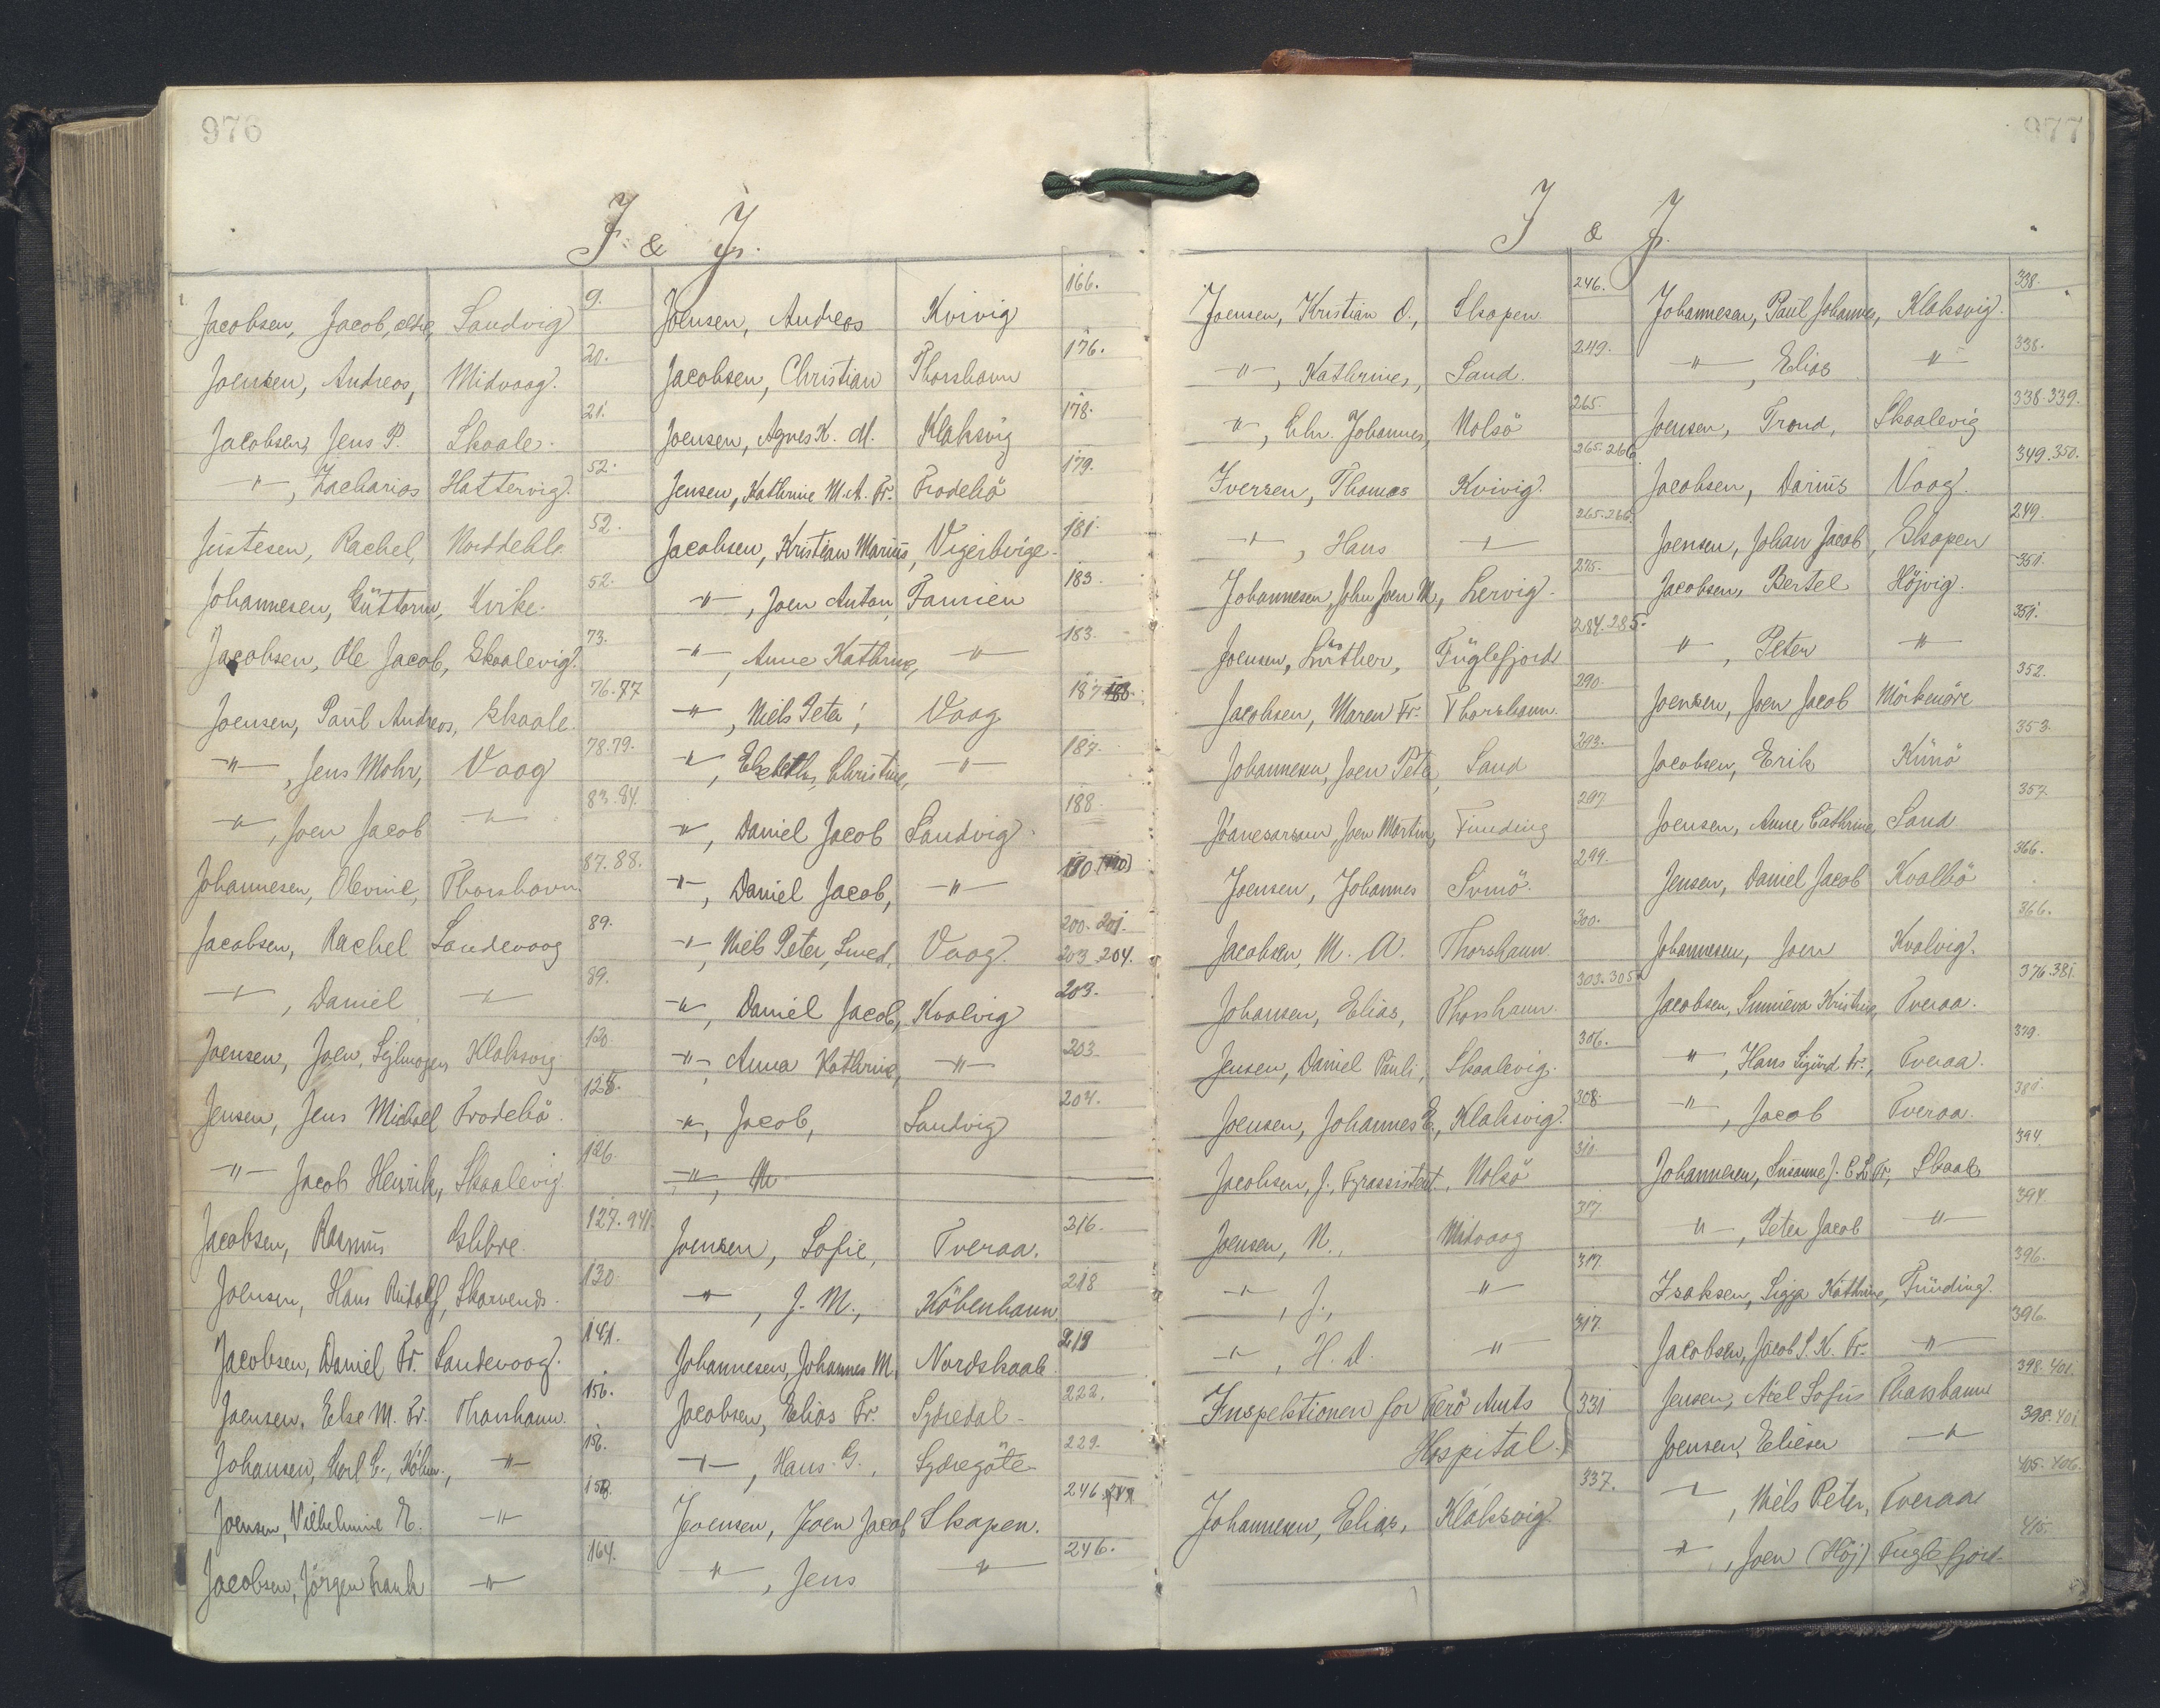 976
J & J.
Jacobsen, Jacob, ældre, Sandvig 9.
Joensen, Andreas, Midvaag. 20.
Jacobsen, Jens P. Skaale. 21.
—"—, Zacharias Hattervig. 52.
Justesen, Rachel, Norddeble 52.
Johannesen, Guttorm, Kirke. 52.
Jacobsen, Ole Jacob, Skaalevig. 73.
Joensen, Paul Andreas, Skaale. 76.77
—"—, Jens Mohr, Vaag 78.79.
—"—, Joen Jacob —"— 83.84.
Johannesen, Olevine, Thorshavn 87.88.
Jacobsen, Rachel Sandevaag 89.
—"—, Daniel —"— 89.
Joensen, Joen, Sejlmager, Klaksvig 120.
Jensen, Jens Michael Frodebö. 125.
—"— Jacob Henrik, Skaalevig 126.
Jacobsen, Rasmus Glibre. 127.941.
Joensen, Hans Rudolf, Skarvends. 130.
Jacobsen, Daniel Fr. Sandevaag. 141.
Joensen, Else M. Fr. Thorshavn. 156.
Johansen, Karl C., Köbm., —"— 156.
Joensen, Vilhelmine E. —"— 158.
Jacobsen, Jörgen Frank —"— 164.
Joensen, Andreas Kvivig 166.
Jacobsen, Christian Thorshavn 176.
Joensen, Agnes K. M. Klaksvig 178.
Jensen, Kathrine M. A. Fr. Frodebö 179.
Jacobsen, Kristian Marius, Vigerbirge. 181.
—"—, Joen Anton, Famien 183.
—"—, Anne Kathrine, —"— 183.
—"—, Niels Peter, Vaag 187.188.
—"—, Elsebeth, Christine, —"— 187.
—"—, Daniel Jacob Sandvig. 188.
—"—, Daniel Jacob, —"— 190 (190)
—"—, Niels Peter, Smed, Vaag. 200.201. 203.204.
—"—, Daniel Jacob, Kvalvig 203.
—"—, Anna Kathrine, —"— 203.
—"—, Jacob, Sandvig 204.
—"—, M
Joensen, Sofie, Tveraa. 216.
—"—, J. M., Köbenhavn 218
Johannesen, Johannes M. Nordskaale. 219
Jacobsen, Elias Fr. Sydredal. 222.
—"—, Hans G., Sydregöte 229.
Joensen, Joen Jacob Skapen. 246.
—"—, Jens —"— 246.
977
J & J.
Joensen, Kristian O., Skapen. 246.
—"—, Kathrine, Sand. 249.
—"—, Chr. Johannes, Nolsö 265.
Iversen, Thomas Kvivig. 265.266.
—"—, Hans —"— 265.266.
Johannesen, John Joen M., Lervig. 275.
Joensen, Luther, Fuglefjord 284.285.
Jacobsen, Maren Fr. Thorshavn. 290.
Johannesen, Joen Peter, Sand 293.
Jóanesarsun, Joen Martin, Funding 297
Joensen, Johannes Svinö. 299.
Jacobsen, M. A. Thorshavn 300.
Johansen, Elias, Thorshavn. 303.305.
Jensen, Daniel Pauli, Skaalevig. 306.
Joensen, Johannes E., Klaksvig. 308.
Jacobsen, J., Fyrassistent, Nolsö 310.
Joensen, N., Midvaag 317.
—"—, J., —"— 317.
—"—, H. D. —"— 317.
Inspektionen for Færö Amts 331
Hospital.
Johannesen, Elias, Klaksvig. 337.
Johannesen, Paul Johannes, Klaksvig. 338.
—"—, Elias —"— 338.
Joensen, Trond, Skaalevig 338.339.
Jacobsen, Darius Vaag. 349.350.
Joensen, Johan Jacob, Skapen 249.
Jacobsen, Bertel Höjvig. 351.
—"—, Peter —"— 351.
Joensen, Joen Jacob Mörkenöre 352.
Jacobsen, Erik Kunö 353.
Joensen, Anne Cathrine, Sand 357.
Jensen, Daniel Jacob Kvalbö 366.
Johannesen, Joen Kvalvig. 366.
Jacobsen, Sunnieva Kristine, Tveraa. 376.381.
—"—, Hans Sigurd Fr., Tveraa. 379.
—"—, Jacob Tveraa. 381.
Johannesen, Susanne J. C. L. Fr., Skaale 394.
—"—, Peter Jacob —"— 394.
Isaksen, Sigga Kathrine, Funding. 396.
Jacobsen, Jacob S. K. Fr. —"— 396.
Jensen, Axel Sofus Thorshavn 398.401.
Joensen, Elieser —"— 398.401
—"—, Niels Peter, Tveraa 405.406.
—"—, Joen (Höj) Fuglefjord. 415.